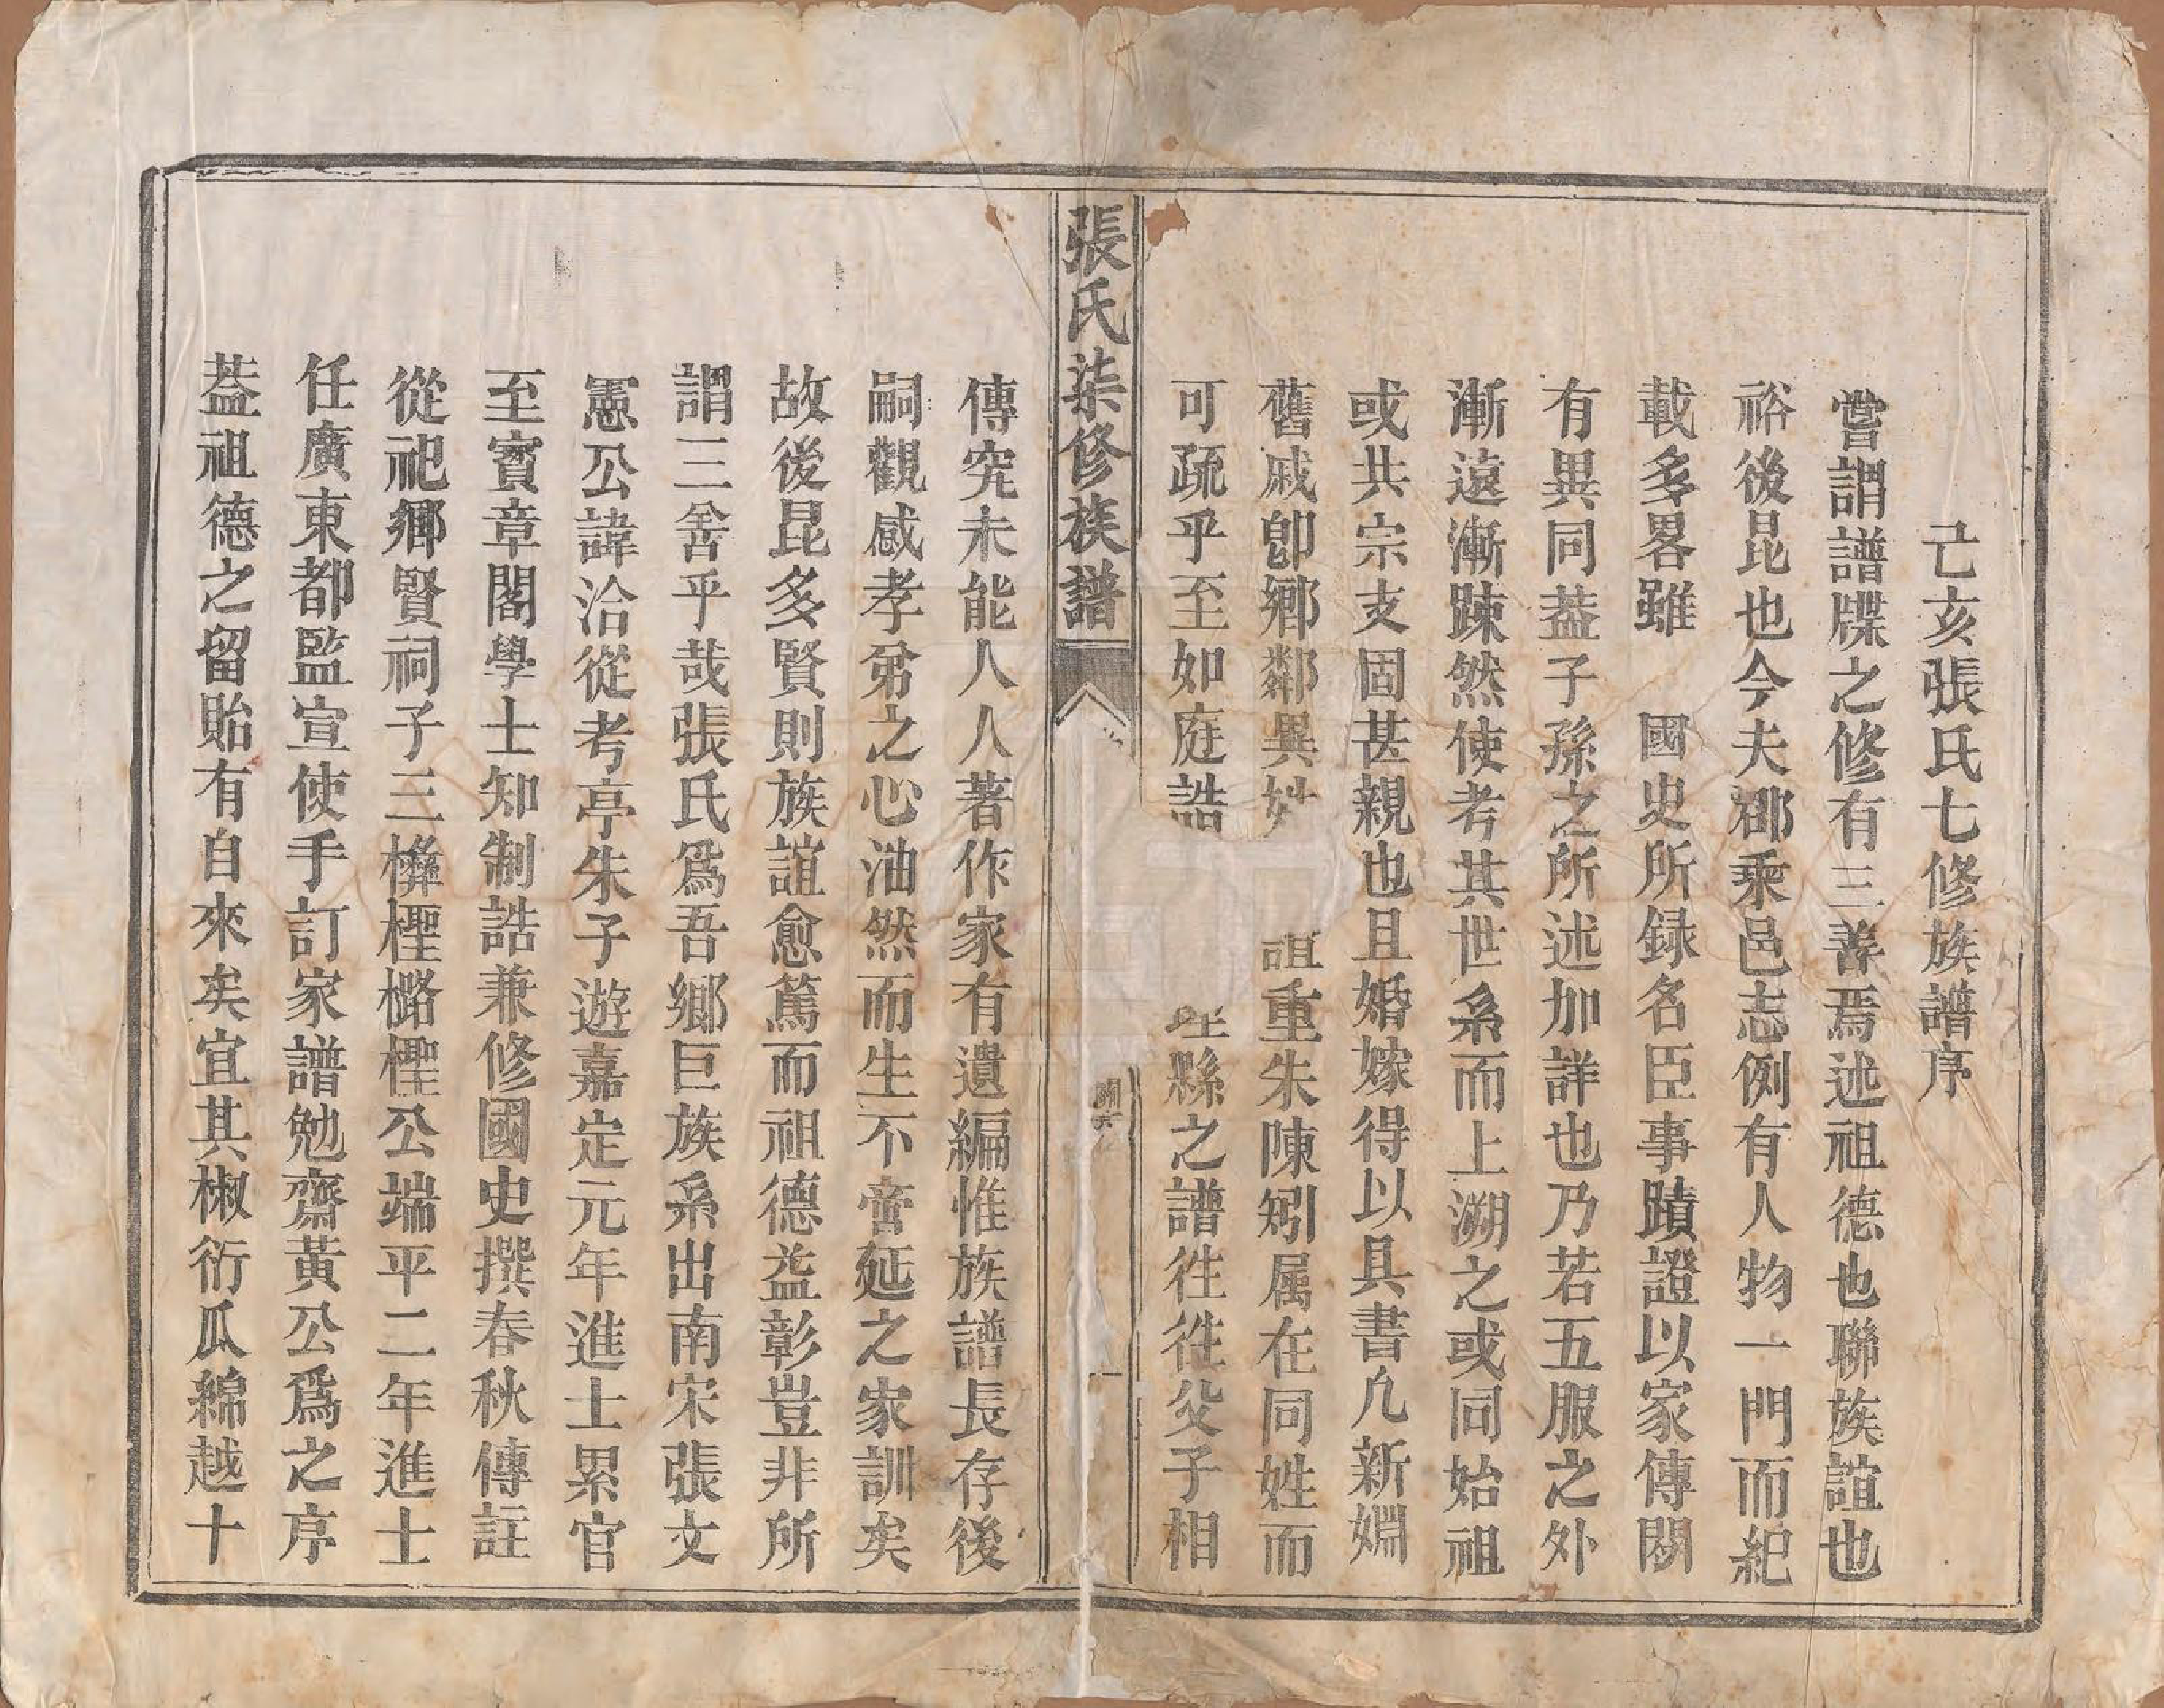 己亥張氏七修族譜序
嘗謂譜牒之修有三善焉述祖德也聯族誼也
裕後昆也今夫郡乘邑志例有人物一門而紀
載多畧雖 國史所録名臣事蹟證以家傳閱
有異同葢子孫之所述加詳也乃若五服之外
漸遠漸踈然使考其世系而上溯之或同始祖
或共宗支固甚親也且婚嫁得以具書凢新婣
舊戚卽鄉鄰異姓 誼重朱陳矧属在同姓而
可疏乎至如庭誥 縣之譜徃徃父子相
張氏柒修族譜
一
傳究未能人人著作家有遺編惟族譜長存後
嗣觀感孝弟之心油然而生不啻延之家訓矣
故後昆多賢則族誼愈篤而祖德益彰豈非所
謂三善乎哉張氏爲吾鄉巨族系出南宋張文
憲公諱洽從考亭朱子遊嘉定元年進士累官
至寳章閣學士知制誥兼修國史撰春秋傳註
從祀鄉賢祠子三橓檉樐檉公端平二年進士
任廣東都監宣使手訂家譜勉齋黃公爲之序
葢祖德之留貽有自來矣宜其椒衍瓜綿越十